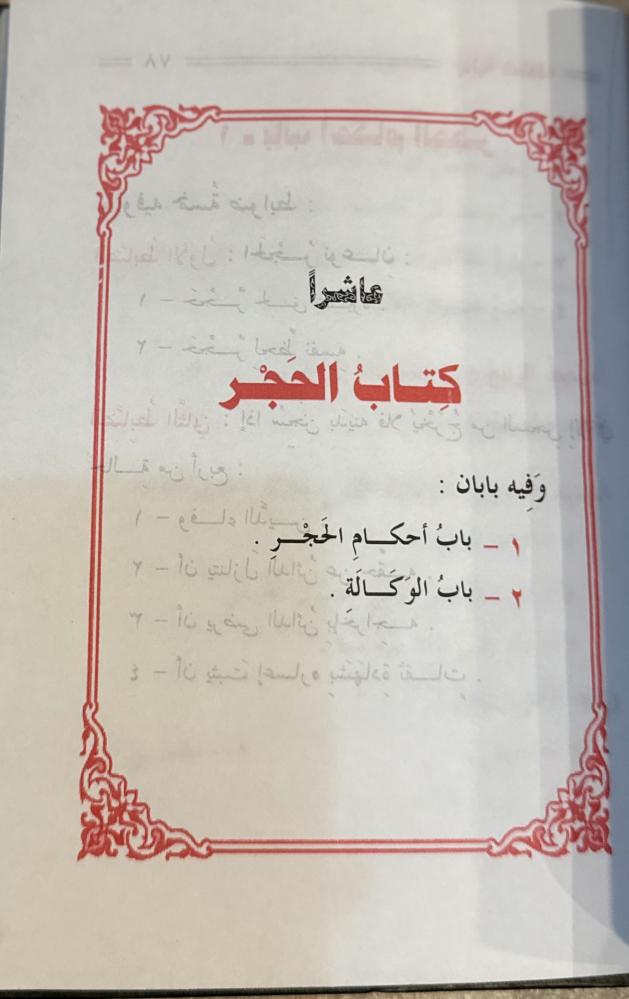 عاشراً
كِتابُ الحَجْر
وَفِيه بابان :
١ – بابُ أحكامِ الحَجْرِ .
٢ – بابُ الوَكَالَةِ .